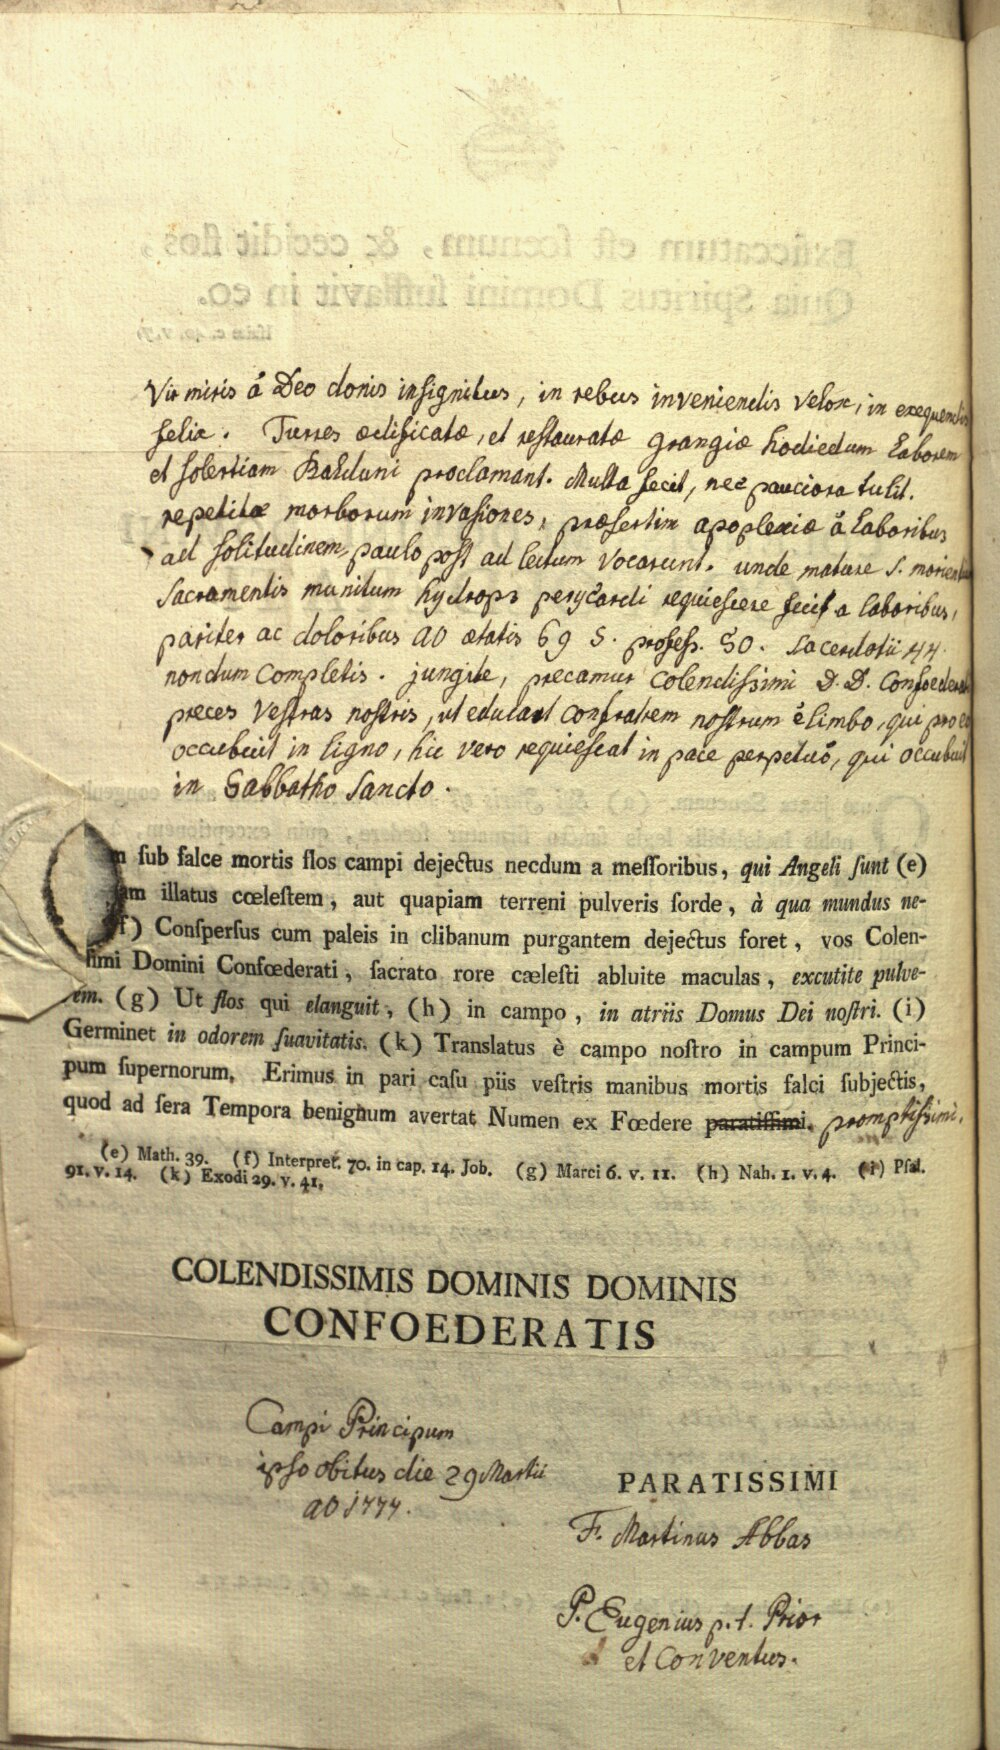 Vir miris â Deo donis insignitus, in rebus inveniendis velox, in exequendis
felix. Turres ædificatæ, et restauratæ grangiæ hodiedum laborem
et solertiam Balduni proclamant. Multa fecit, nec pauciora tulit.
repetitæ morborum invasiones, præsertim apoplexiæ â laboribus
ad solitudinem, paulo post ad lectum vocarunt. unde mature S. morientium
Sacramentis munitum hydrops perycardi requiescere fecit a laboribus,
pariter ac doloribus aô ætatis 69 S. profess. 50. Sacerdotii 44
nondum completis. jungite, precamur Colendissimi D. D. Confoederati
preces vestras nostris, ut educant confratrem nostrum ê limbo, qui pro eo
occubuit in ligno, hic vero requiescat in pace perpetuô, qui occubuit
in Sabbatho Sancto.
sub falce mortis flos campi dejectus necdum a messoribus, qui Angeli sunt (e)
illatus cœlestem, aut quapiam terreni pulveris sorde, à qua mundus ne-
f) Conspersus cum paleis in clibanum purgantem dejectus foret, vos Colen-
simi Domini Confœderati, sacrato rore cælesti abluite maculas, excutite pulve-
rem. (g) Ut flos qui elanguit, (h) in campo, in atriis Domus Dei nostri. (i)
Germinet in odorem suavitatis. (k) Translatus è campo nostro in campum Princi-
pum supernorum. Erimus in pari casu piis vestris manibus mortis falci subjectis,
quod ad sera Tempora benignum avertat Numen ex Fœdere paratissimi. promptissimi.
(e) Math. 39. (f) Interpret. 70. in cap. 14. Job. (g) Marci 6. v. 11. (h) Nah. 1. v. 4. (i) Psal.
91. v. 14. (k) Exodi 29. v. 41.
COLENDISSIMIS DOMINIS DOMINIS
CONFOEDERATIS
Campi Principum
ipso obitus die 29 Martii
aô 1777.
PARATISSIMI
F. Martinus Abbas
P. Eugenius p. t. Prior
et Conventus.